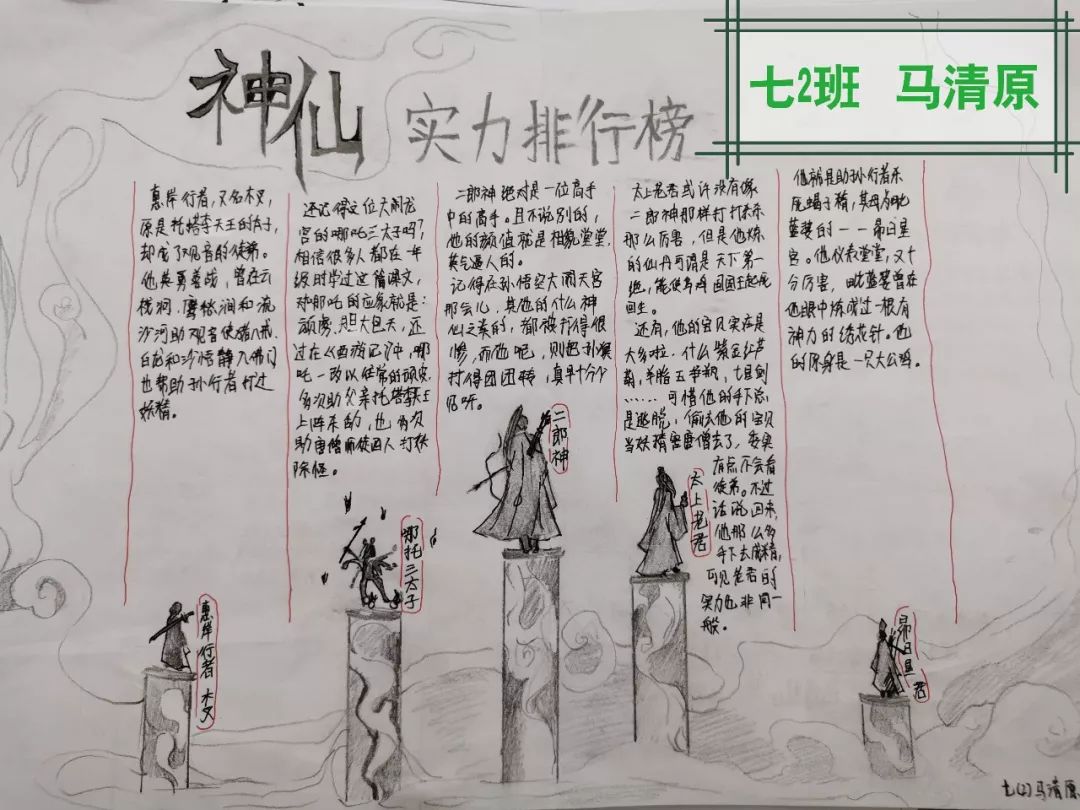 七2班 马清原
神仙 实力排行榜
惠岸行者,又名木叉,
原是托塔李天王的二子,
却成了观音的徒弟。
他英勇善战,曾在云
栈洞、鹰愁涧和流
沙河助观音使猪八戒、
白龙和沙悟静入佛门
也帮助孙行者打过
妖精。
惠岸行者 木叉
还记得这位大闹龙
宫的哪吒三太子吗?
相信很多人都在一年
级时学过这篇课文,
对哪吒的印象就是:
顽虏,胆大包天,还
过在《西游记》中,哪
吒一改以往常的顽皮,
多次助父亲托塔李天王
上阵杀敌,也有次
助唐僧师徒四人打妖
除怪。
哪托三太子
二郎神绝对是一位高手
中的高手。且不说别的,
他的颜值就是相貌堂堂,
英气逼人的。
记得在孙悟空大闹天宫
那会儿,其他的什么神
仙之类的,都被打得很
惨,而他呢,则把孙猴
打得团团转,真是十分少
见呀。
二郎神
太上老君或许没有像
二郎神那样打打杀杀
那么厉害,但是他炼
的仙丹可谓是天下第一
绝,能使乌鸡国国王起死
回生。
还有,他的宝贝实在是
太多啦,什么紫金红葫
芦,羊脂玉净瓶,七星剑
……可惜他的手下总
是逃脱,偷他的宝贝
当妖精害唐僧去了,老臾
有点不会看
徒弟。不过
话说回来,
他那么多
手下去成精,
可见老君的
实力也非同一
般。
太上老君
他就是助孙行者杀
死蝎子精,其母为毗
蓝婆的——昴日星
官。他仪表堂堂,又十
分厉害,毗蓝婆曾在
他眼中炼成过一根有
神力的绣花针。他
的原身是一只大公鸡。
昴日星君
七(2)马清原